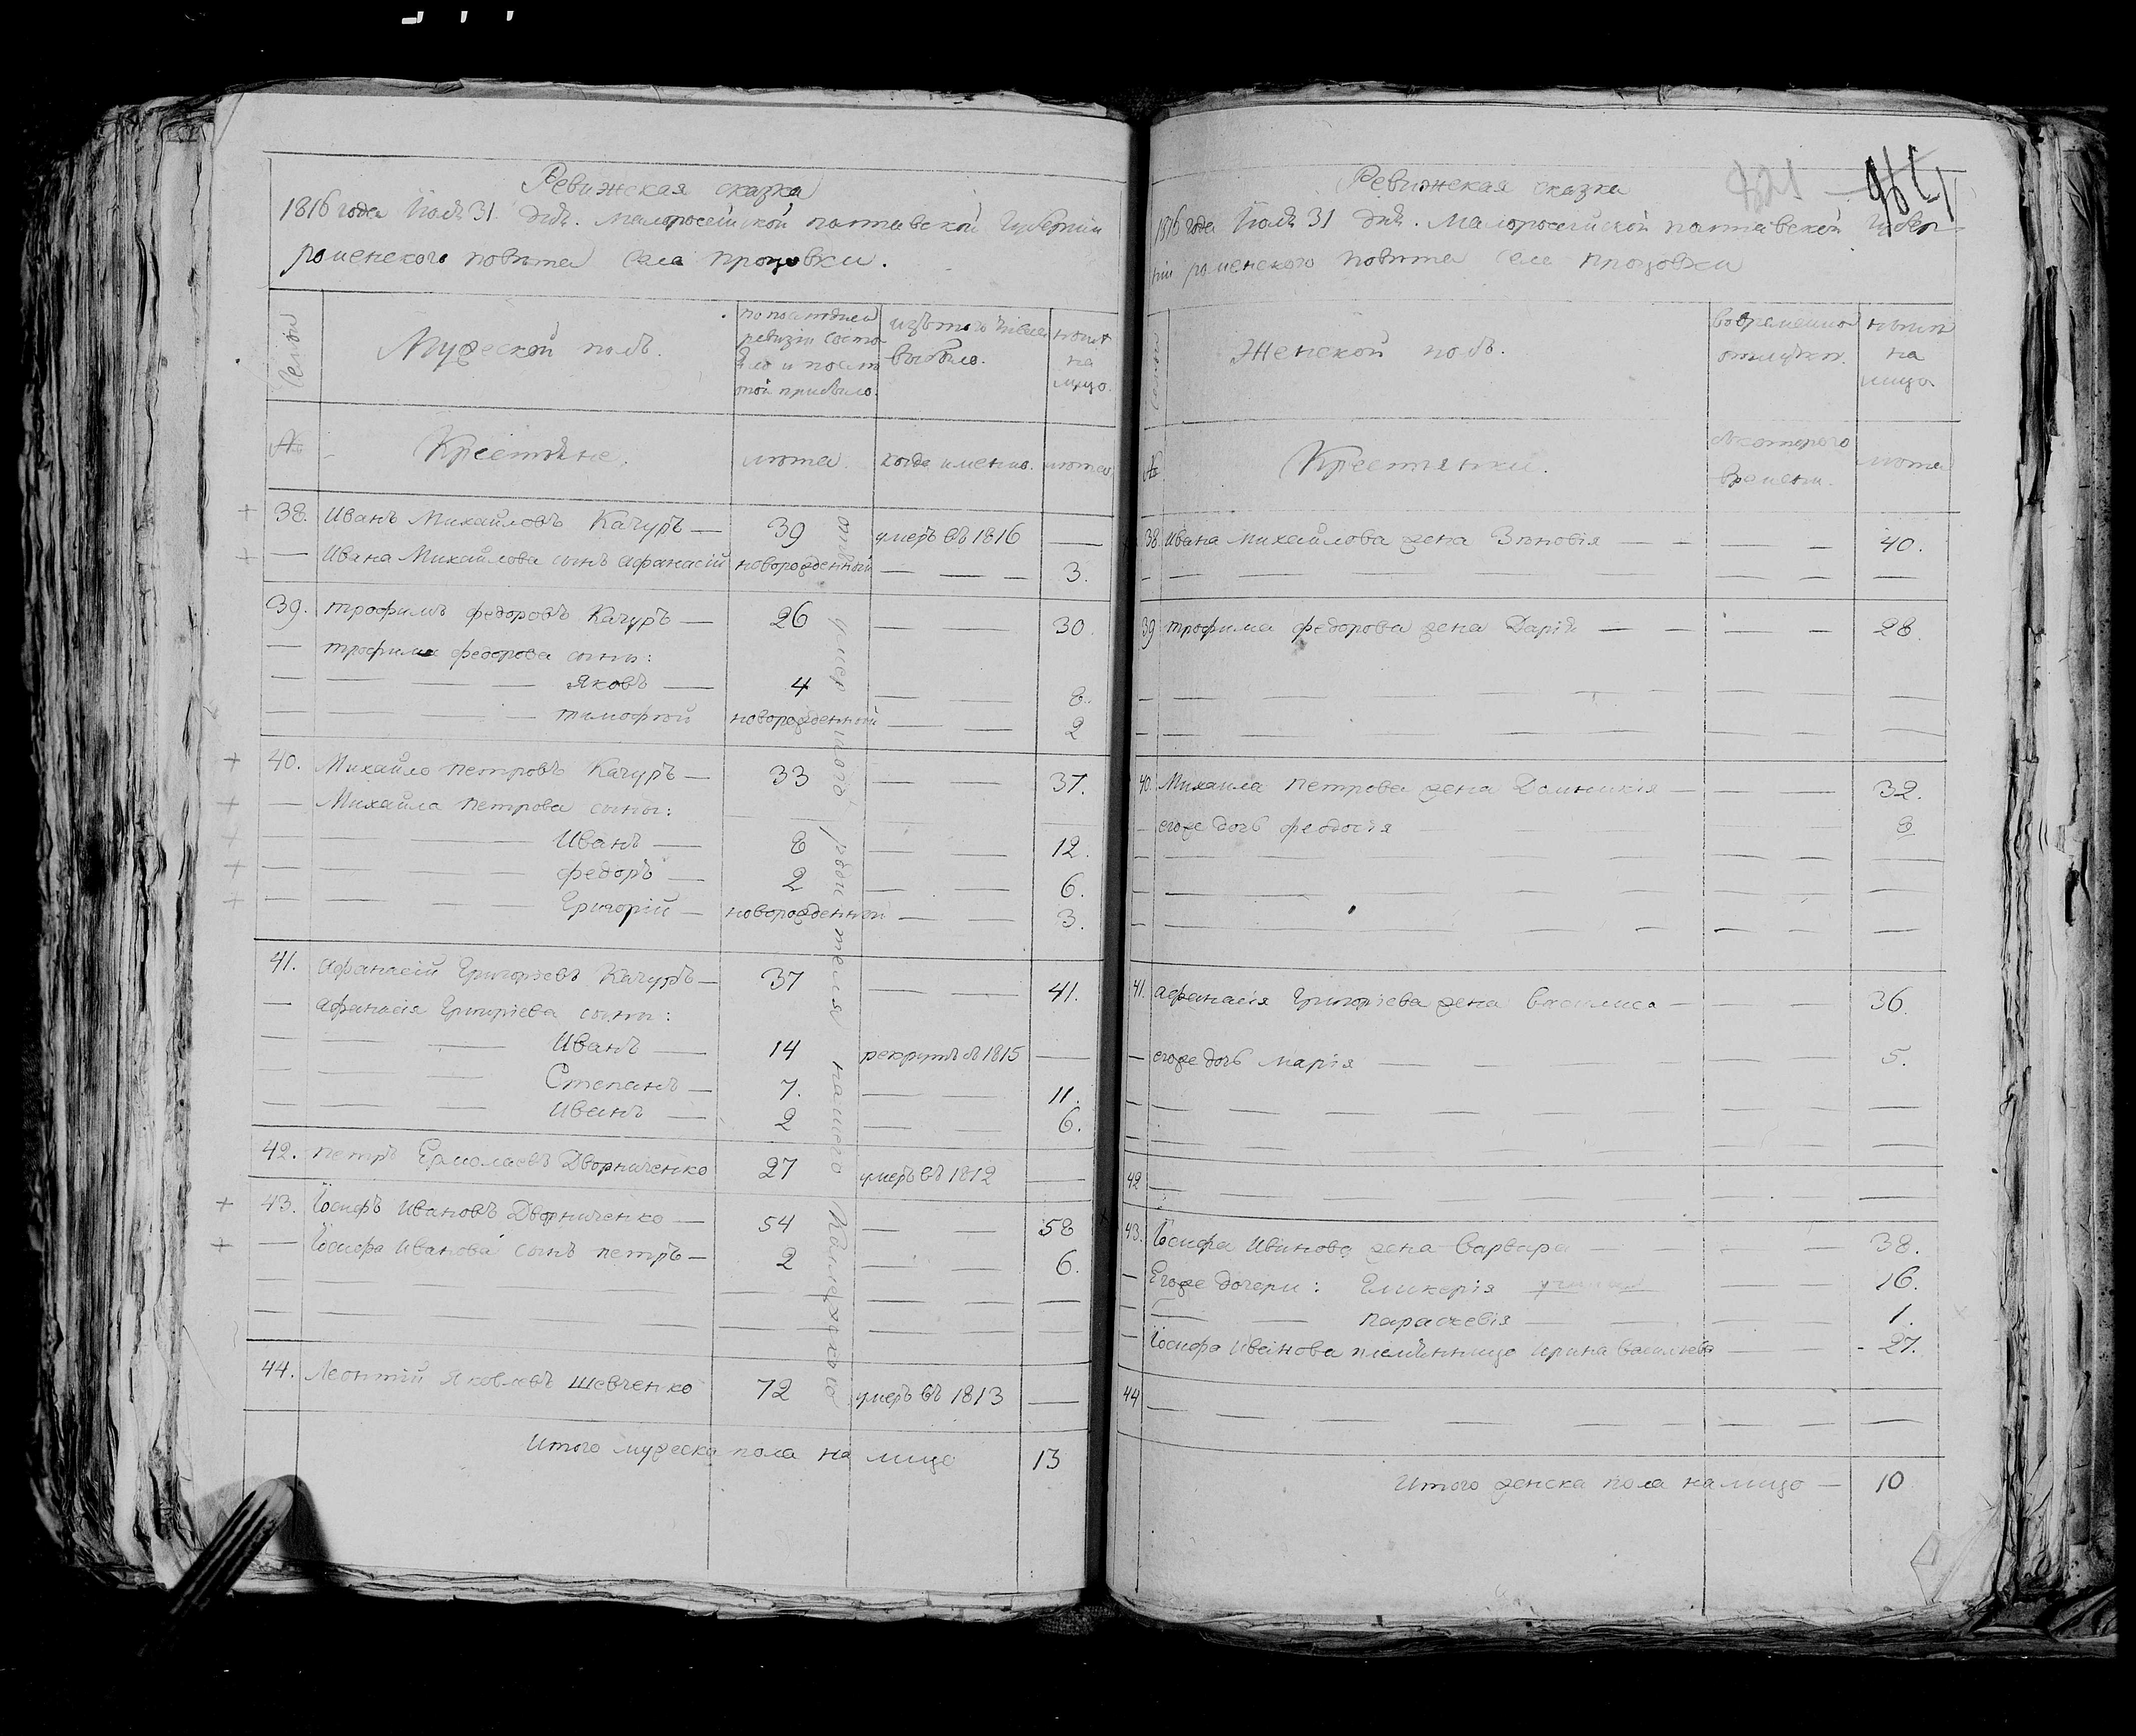 Ревижская сказка
1816 года Июля 31 дня. Малоросейской полтавской Губернии
роменского повѣта села процовки.
Семьи
Мужеской полъ.
по последней
ревизии состо
яло и после
той прибыло.
изъ того числа
выбыло.
ныне
на
лицо.
№
Крестяне.
лета.
когда именно.
лета
38. Иванъ Михайловъ Качуръ — 39 умеръ въ 1816 —
— Ивана Михайлова сынъ афанасій новорожденный — — — 3.
39. трофимъ федоровъ Качуръ — 26 — — 30.
— трофима федорова сыны:
— — — — Яковъ — 4 — — 8.
— — — — тимофей новорожденный — — 2
40. Михайло петровъ Качуръ — 33 — — 37.
— Михайла петрова сыны:
— — — Иванъ — 8 — — 12.
— — — — федоръ — 2 — — 6.
— — — — Григорій — новорожденный — — 3.
41. афанасій Григорієвъ Качуръ — 37 — — 41.
— афанасія Григорієва сыны:
— — — Иванъ — 14 рекрутъ въ 1815 —
— — — Степанъ — 7. — — 11.
— — — Иванъ — 2 — — 6.
42. петръ Ермолаевъ Дворниченко 27 умеръ въ 1812 —
43. Іосифъ Ивановъ Дворниченко — 54 — — 58
— Іосифа Иванова сынъ петръ — 2 — — 6.
44. Леонтій Яковлевъ Шевченко 72 умеръ въ 1813 —
Итого мужеска пола на лицо 13
умер
родителя нашего
Ревижская сказка
1816 года Июля 31 дня. Малоросейской полтавской Губер-
нии роменского повѣта села процовки
Семьи
Женской полъ.
во временной
отлучке.
ныне
на
лицо
№
Крестянки.
с которого
времени.
лета
38. Ивана Михайлова жена Зѣновія — — — — 40.
39 трофима федорова жена Дарія — — — — 28.
40. Михаила петрова жена Домникія — — — 32.
— егоже дочь феодосія 8
41. афанасія Григорієва жена Василиса — — — 36.
— егоже дочь марія — — — — 5.
42
43. Іосифа Иванова жена варвара — — — 38.
— Егоже дочери: Гликерія — — 16.
— — параскевія — — — 1.
— Іосифа Иванова племѣнница Ирина васильева — — 27.
44
Итого женска пола на лицо — 10